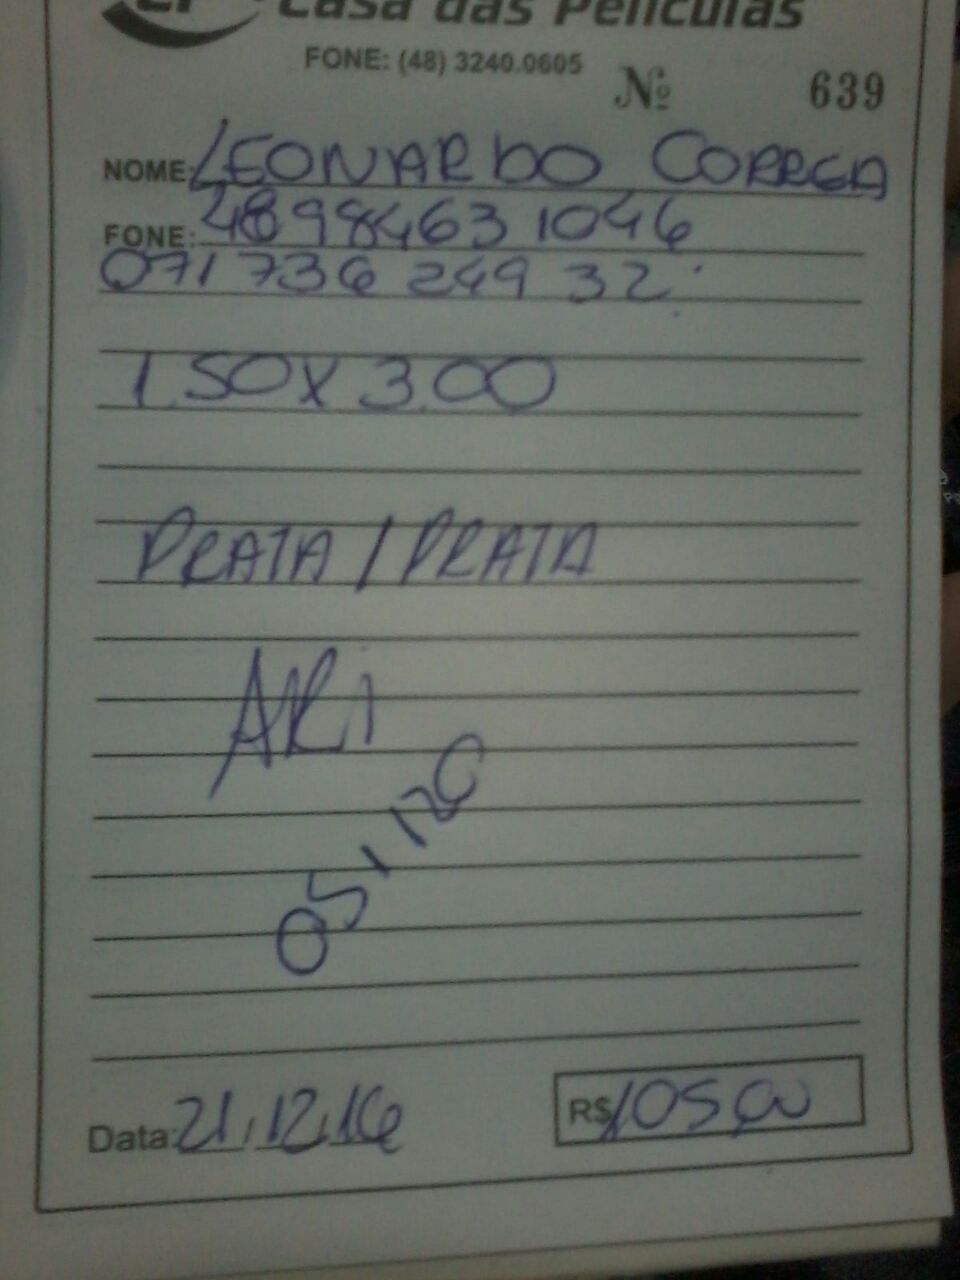 Casa das Películas
FONE: (48) 3240.0605
Nº 639
NOME: LEONARDO CORREA
FONE: 48 98463 1046
071 736 249 32
1.50 X 3.00
PRATA / PRATA
ARi
Data: 21.12.16
R$ 105,00